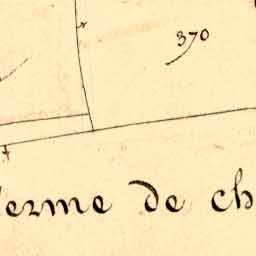 370
ferme de ch